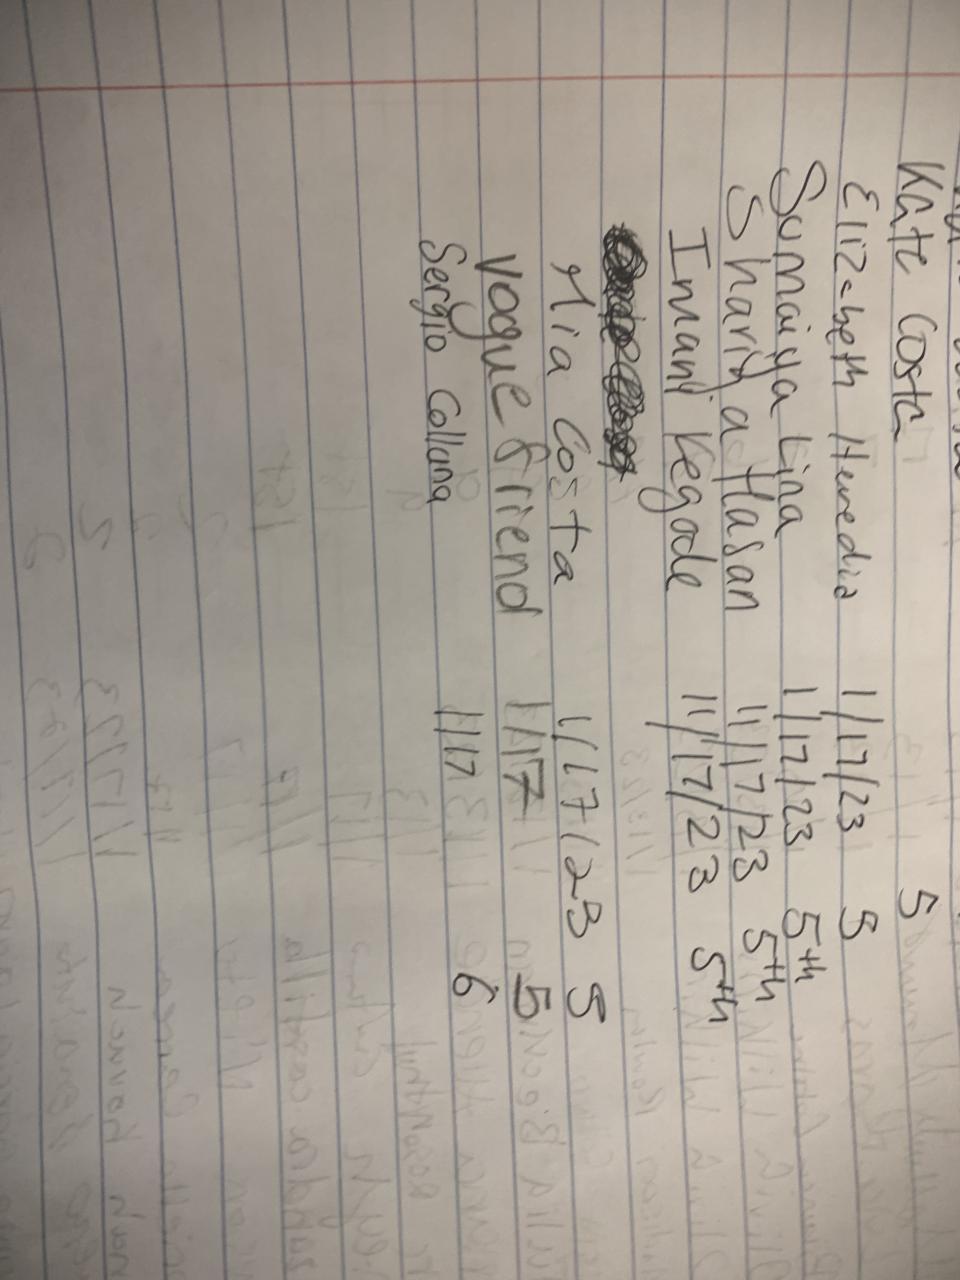 Kate Costa 5
Elizabeth Heredia 1/17/23 5
Sumaiya Lina 1/17/23 5th
Shariha Hasan 11/17/23 5th
Imani Kegode 11/17/23 5th
Mia Costa 1/17/23 5
Vogue friend 1/17 5
Sergio Collana 1/17 6